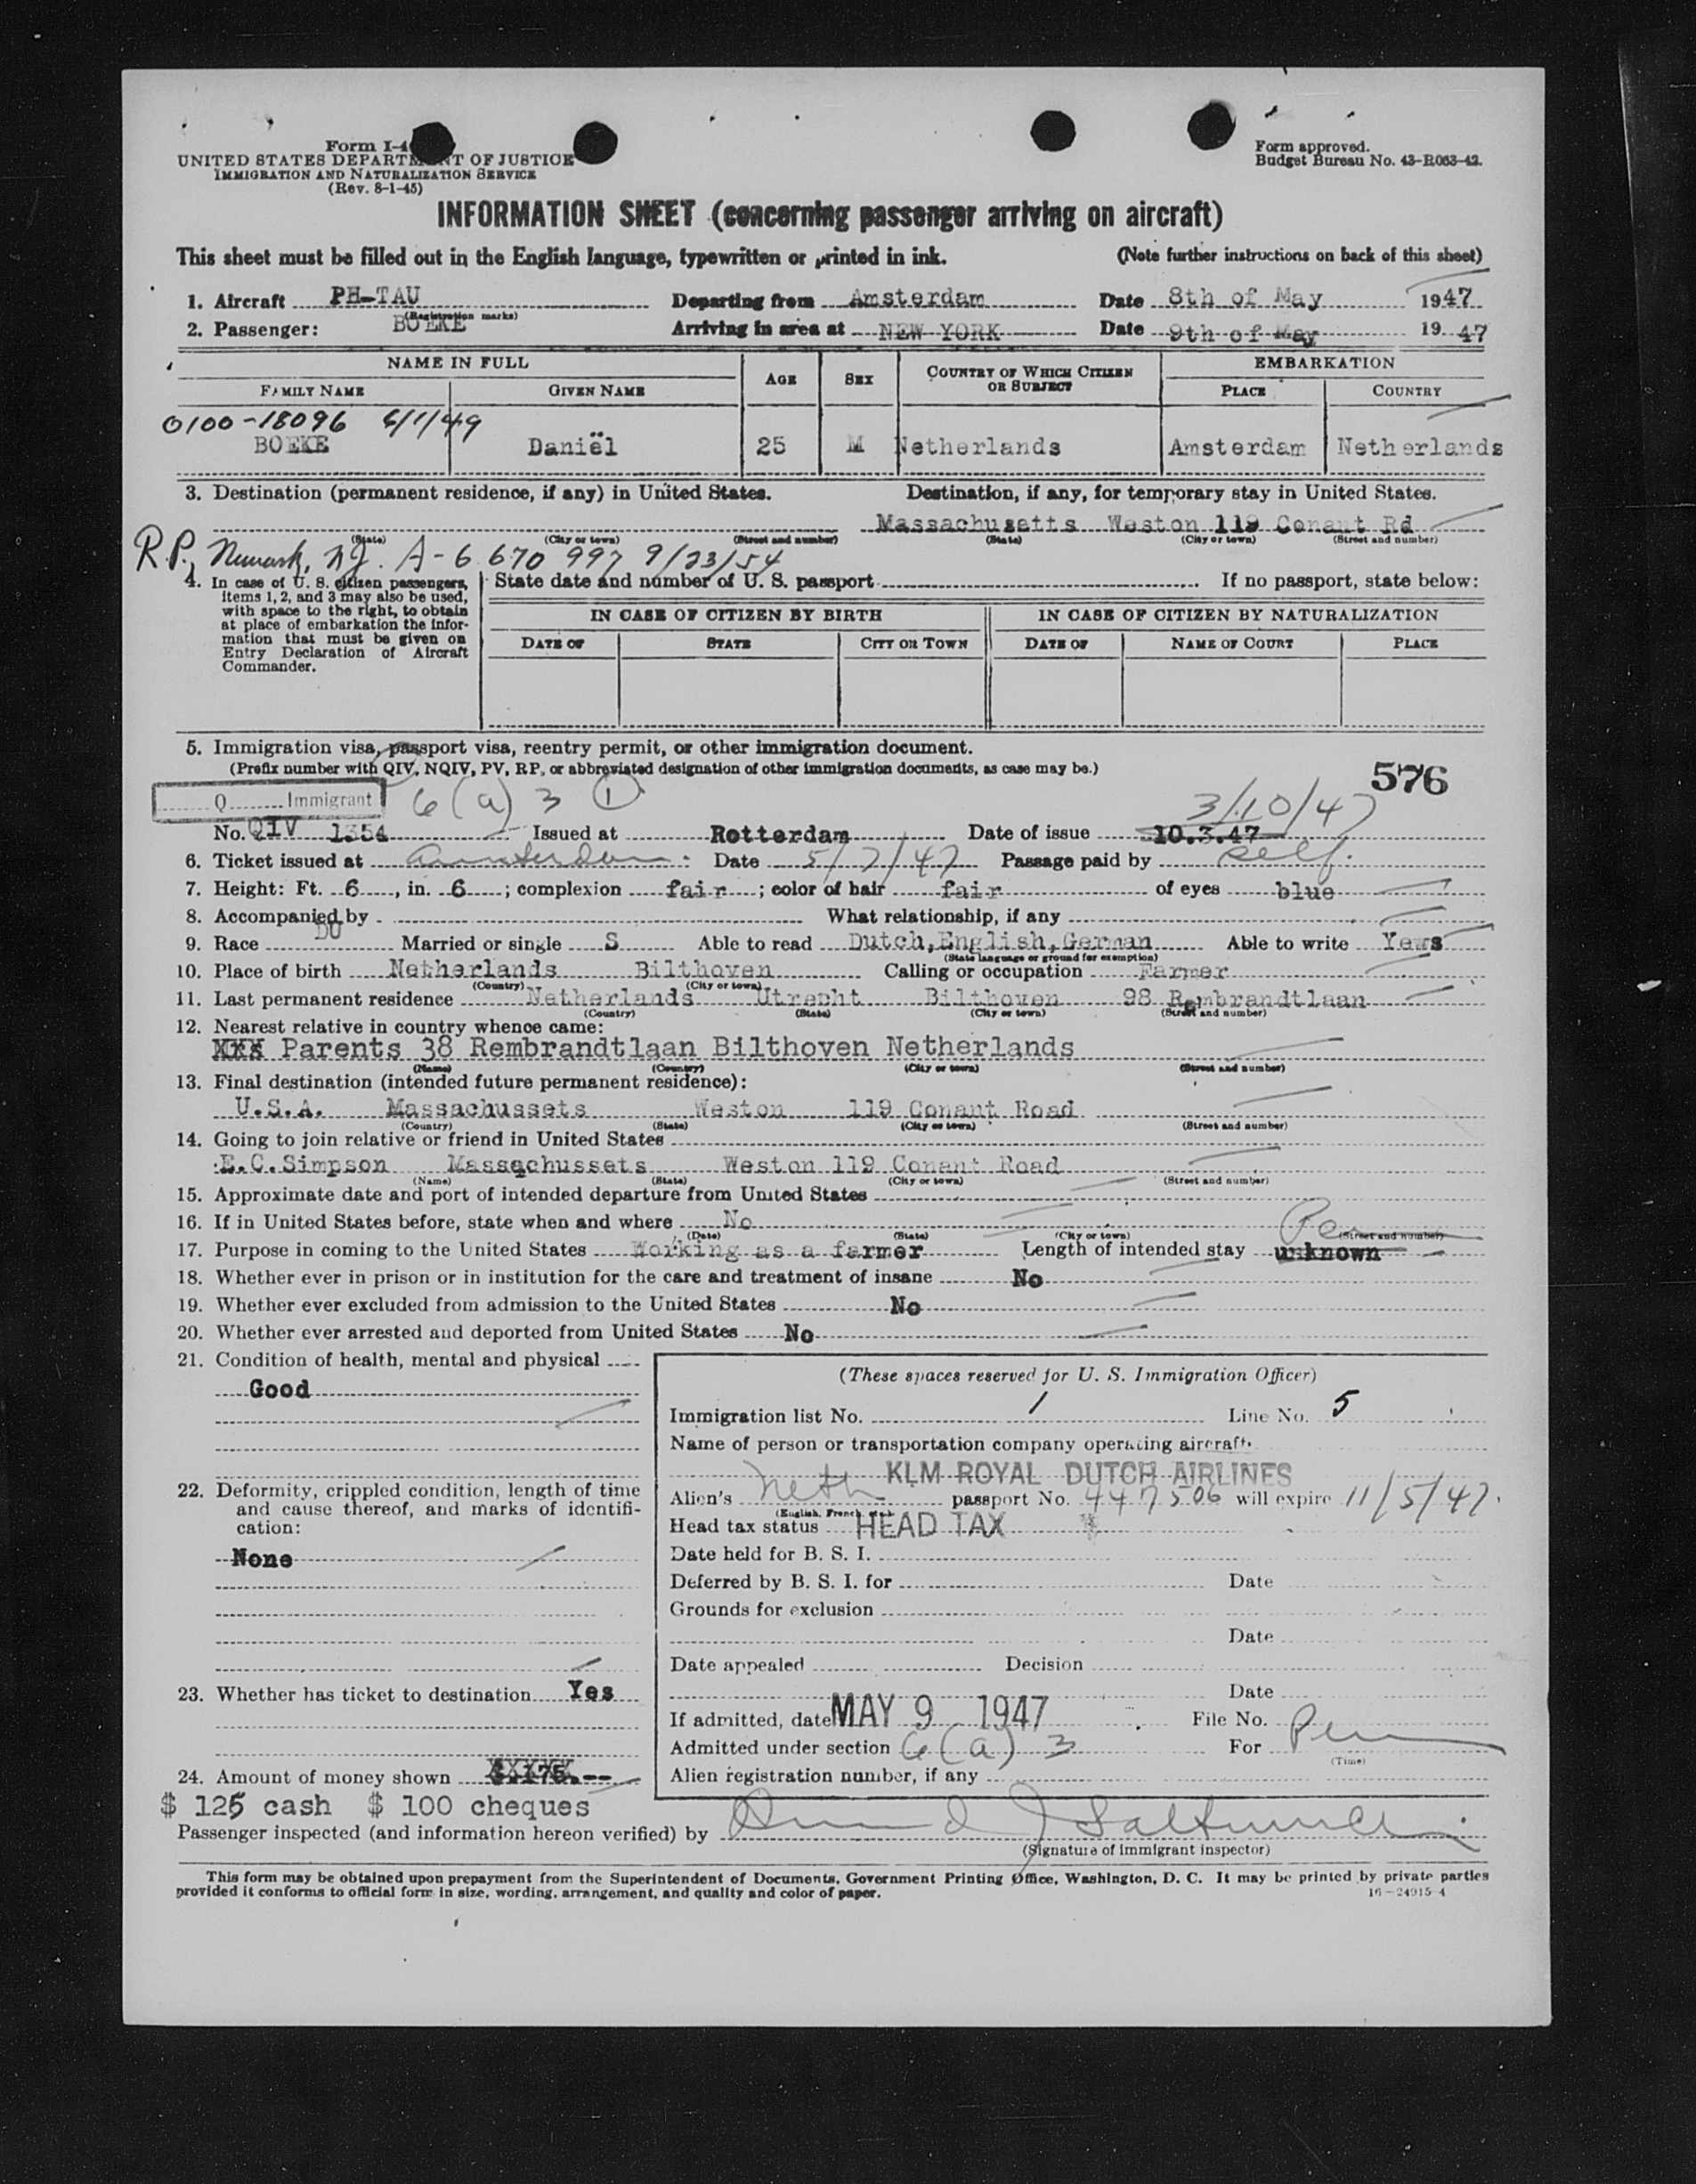 Form I-4
UNITED STATES DEPARTMENT OF JUSTICE
IMMIGRATION AND NATURALIZATION SERVICE
(Rev. 8-1-45)
Form approved.
Budget Bureau No. 43-R063-42.
INFORMATION SHEET (concerning passenger arriving on aircraft)
This sheet must be filled out in the English language, typewritten or printed in ink. (Note further instructions on back of this sheet)
1. Aircraft PH-TAU Departing from Amsterdam Date 8th of May 1947
(Registration marks)
2. Passenger: BOEKE Arriving in area at NEW YORK Date 9th of May 19 47
NAME IN FULL AGE SEX COUNTRY OF WHICH CITIZEN OR SUBJECT EMBARKATION
FAMILY NAME GIVEN NAME PLACE COUNTRY
0100-18096 6/1/49
BOEKE Daniël 25 M Netherlands Amsterdam Netherlands
3. Destination (permanent residence, if any) in United States. Destination, if any, for temporary stay in United States.
Massachusetts Weston 119 Conant Rd
(State) (City or town) (Street and number) (State) (City or town) (Street and number)
R.P., Newark, N.J. A-6 670 997 9/23/54
4. In case of U. S. citizen passengers, items 1, 2, and 3 may also be used, with space to the right, to obtain at place of embarkation the information that must be given on Entry Declaration of Aircraft Commander.
State date and number of U. S. passport If no passport, state below:
IN CASE OF CITIZEN BY BIRTH IN CASE OF CITIZEN BY NATURALIZATION
DATE OF STATE CITY OR TOWN DATE OF NAME OF COURT PLACE
5. Immigration visa, passport visa, reentry permit, or other immigration document.
(Prefix number with QIV, NQIV, PV, RP, or abbreviated designation of other immigration documents, as case may be.)
576
Q Immigrant 6 (a) 3 1 3/10/47
No. QIV 1354 Issued at Rotterdam Date of issue 10.3.47
6. Ticket issued at Amsterdam Date 5/7/47 Passage paid by self.
7. Height: Ft. 6, in. 6; complexion fair; color of hair fair of eyes blue
8. Accompanied by - What relationship, if any
9. Race DU Married or single S Able to read Dutch, English, German Able to write Yews
(State language or ground for exemption)
10. Place of birth Netherlands Bilthoven Calling or occupation Farmer
(Country) (City or town)
11. Last permanent residence Netherlands Utrecht Bilthoven 98 Rembrandtlaan
(Country) (State) (City or town) (Street and number)
12. Nearest relative in country whence came:
XXX Parents 38 Rembrandtlaan Bilthoven Netherlands
(Name) (Country) (City or town) (Street and number)
13. Final destination (intended future permanent residence):
U.S.A. Massachussets Weston 119 Conant Road
(Country) (State) (City or town) (Street and number)
14. Going to join relative or friend in United States
E.C.Simpson Massachussets Weston 119 Conant Road
(Name) (State) (City or town) (Street and number)
15. Approximate date and port of intended departure from United States
16. If in United States before, state when and where No
(Date) (State) (City or town) (Street and number)
17. Purpose in coming to the United States Working as a farmer Length of intended stay unknown Per
18. Whether ever in prison or in institution for the care and treatment of insane No
19. Whether ever excluded from admission to the United States No
20. Whether ever arrested and deported from United States No
21. Condition of health, mental and physical
Good
22. Deformity, crippled condition, length of time and cause thereof, and marks of identification:
None
23. Whether has ticket to destination Yes
24. Amount of money shown $.175.--
$ 125 cash $ 100 cheques
(These spaces reserved for U. S. Immigration Officer)
Immigration list No. 1 Line No. 5
Name of person or transportation company operating aircraft
KLM ROYAL DUTCH AIRLINES
Alien's Neth passport No. 447506 will expire 11/5/47.
(English, French, etc.)
Head tax status HEAD TAX
Date held for B. S. I.
Deferred by B. S. I. for Date
Grounds for exclusion
Date
Date appealed Decision
Date
If admitted, date MAY 9 1947 File No.
Admitted under section 6 (a) 3 For Per
(Time)
Alien registration number, if any
Passenger inspected (and information hereon verified) by
(Signature of immigrant inspector)
This form may be obtained upon prepayment from the Superintendent of Documents, Government Printing Office, Washington, D. C. It may be printed by private parties
provided it conforms to official form in size, wording, arrangement, and quality and color of paper. 16—24915-4